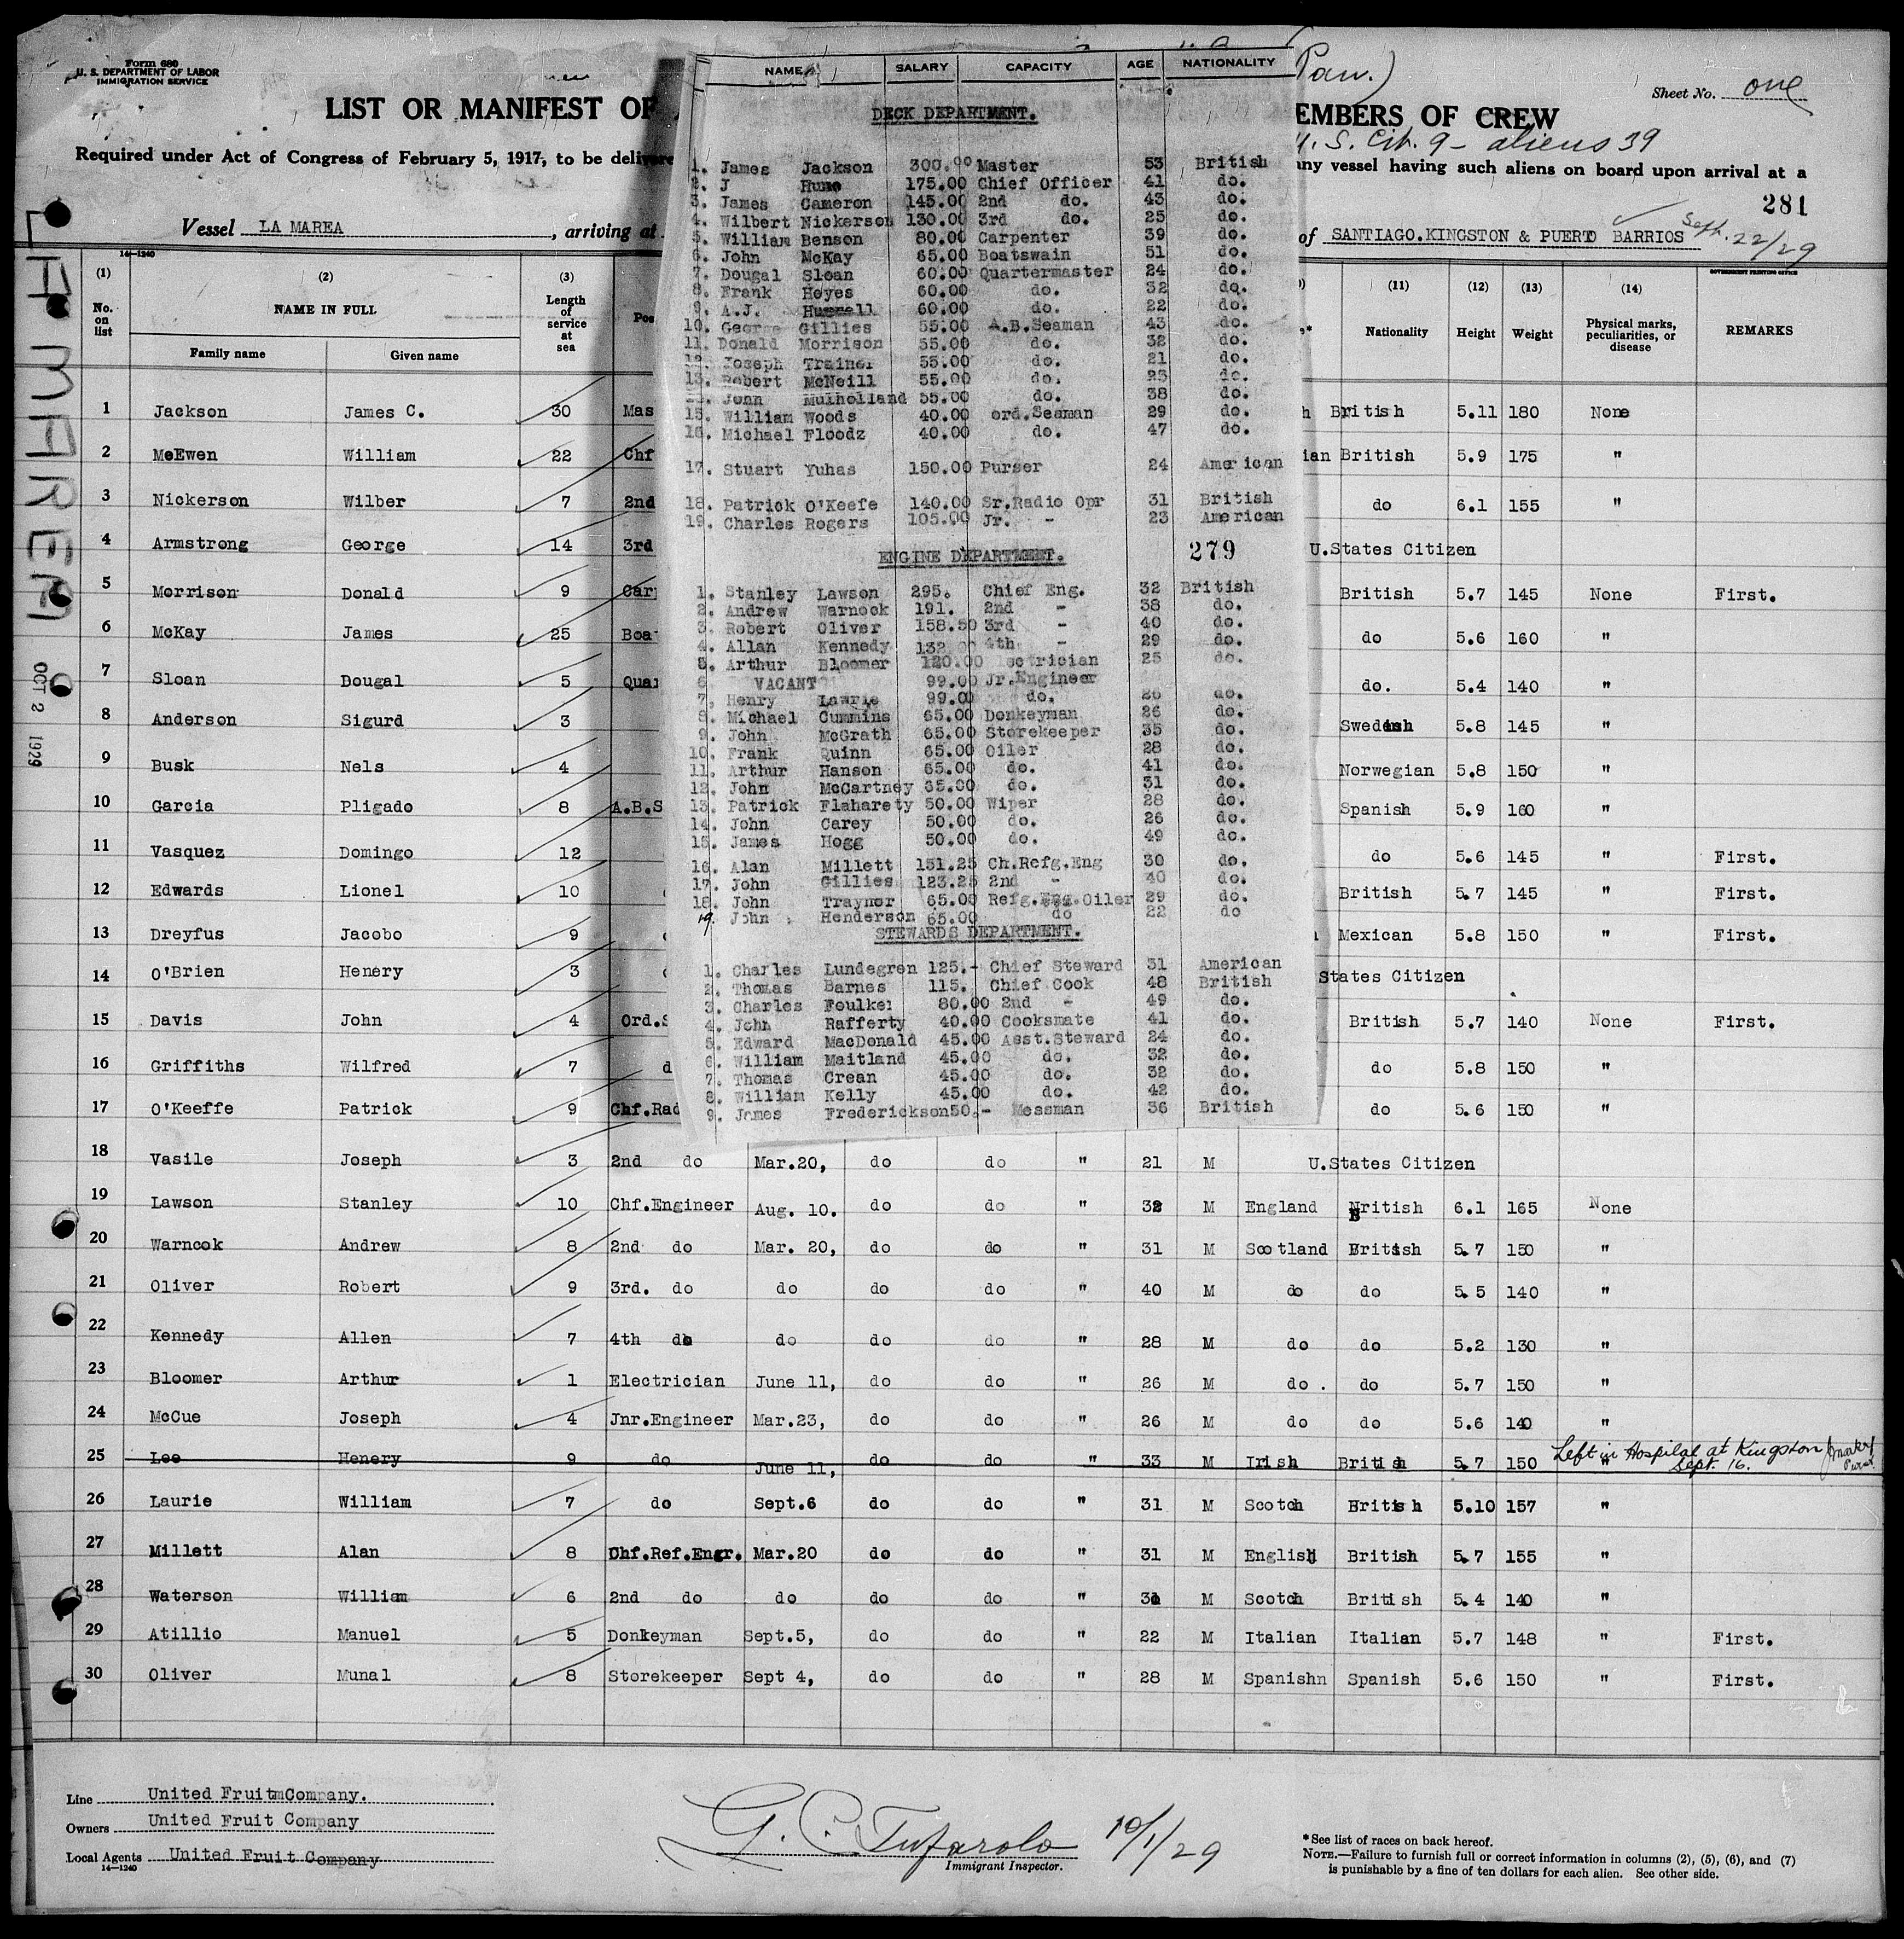 Form 680
U. S. DEPARTMENT OF LABOR
IMMIGRATION SERVICE
LIST OR MANIFEST OF
EMBERS OF CREW
Pan.)
Sheet No. one
U.S. Cit. 9 - aliens 39
Required under Act of Congress of February 5, 1917, to be delivere
any vessel having such aliens on board upon arrival at a
281
Vessel LA MAREA, arriving at
of SANTIAGO.KINGSTON & PUERTO BARRIOS Sept. 22/29
LA MAREA
OCT 2 1929
14—1240
GOVERNMENT PRINTING OFFICE
(1) (2) (3) (11) (12) (13) (14)
No. on list NAME IN FULL Length of service at sea Pos Nationality Height Weight Physical marks, peculiarities, or disease REMARKS
Family name Given name
1 Jackson James C. 30 Mas British 5.11 180 None
2 McEwen William 22 Chf ian British 5.9 175 "
3 Nickerson Wilber 7 2nd do 6.1 155 "
4 Armstrong George 14 3rd U.States Citizen
5 Morrison Donald 9 Car British 5.7 145 None First.
6 McKay James 25 Boa do 5.6 160 "
7 Sloan Dougal 5 Qua do. 5.4 140 "
8 Anderson Sigurd 3 Swedish 5.8 145 "
9 Busk Nels 4 Norwegian 5.8 150 "
10 Garcia Pligado 8 A.B.S Spanish 5.9 160 "
11 Vasquez Domingo 12 do 5.6 145 " First.
12 Edwards Lionel 10 British 5.7 145 " First.
13 Dreyfus Jacobo 9 Mexican 5.8 150 " First.
14 O'Brien Henery 3 States Citizen
15 Davis John 4 Ord.S British 5.7 140 None First.
16 Griffiths Wilfred 7 d do 5.8 150 "
17 O'Keeffe Patrick 9 Chf.Rad do 5.6 150 "
18 Vasile Joseph 3 2nd do Mar.20, do do " 21 M U.States Citizen
19 Lawson Stanley 10 Chf.Engineer Aug. 10. do do " 32 M England British 6.1 165 None
20 Warncok Andrew 8 2nd do Mar. 20, do do " 31 M Scotland British 5.7 150 "
21 Oliver Robert 9 3rd. do do do do " 40 M do do 5.5 140 "
22 Kennedy Allen 7 4th do do do do " 28 M do do 5.2 130 "
23 Bloomer Arthur 1 Electrician June 11, do do " 26 M do . do 5.7 150 "
24 McCue Joseph 4 Jnr.Engineer Mar.23, do do " 26 M do do 5.6 140 "
25 Lee Henery 9 do June 11, do do " 33 M Irish British 5.7 150 " Left in Hospital at Kingston Sept. 16.
26 Laurie William 7 do Sept.6 do do " 31 M Scotch British 5.10 157 "
27 Millett Alan 8 Chf.Ref.Engr. Mar.20 do do " 31 M English British 5.7 155 "
28 Waterson William 6 2nd do do do do " M Scotch British 5.4 140 "
29 Atillio Manuel 5 Donkeyman Sept.5, do do " 22 M Italian Italian 5.7 148 " First.
30 Oliver Munal 8 Storekeeper Sept 4, do do " 28 M Spanishn Spanish 5.6 150 " First.
NAME SALARY CAPACITY AGE NATIONALITY
DECK DEPARTMENT.
1. James Jackson 300.00 Master 53 British
2. J Hume 175.00 Chief Officer 41 do.
3. James Cameron 145.00 2nd do. 43 do.
4. Wilbert Nickerson 130.00 3rd do. 25 do.
5. William Benson 80.00 Carpenter 39 do.
6. John McKay 65.00 Boatswain 51 do.
7. Dougal Sloan 60.00 Quartermaster 24 do.
8. Frank Hoyes 60.00 do. 32 do.
9. A.J. 60.00 do. 22 do.
10. George Gillies 55.00 A.B.Seaman 43 do.
11. Donald Morrison 55.00 do. 32 do.
12. Joseph Trainer 55.00 do. 21 do.
13. Robert McNeill 55.00 do. 23 do.
John Mulholland 55.00 do. 38 do.
15. William Woods 40.00 ord.Seaman 29 do.
16. Michael Floodz 40.00 do. 47 do.
17. Stuart Yuhas 150.00 Purser 24 American
18. Patrick O'Keefe 140.00 Sr.Radio Opr 31 British
19. Charles Rogers 105.00 Jr. - 23 American
ENGINE DEPARTMENT. 279
1. Stanley Lawson 295. Chief Eng. 32 British
2. Andrew Warnock 191. 2nd - 38 do.
3. Robert Oliver 158.50 3rd - 40 do.
4. Allan Kennedy 132.00 4th - 29 do.
5. Arthur Bloomer 120.00 lectrician 25 do.
6 VACANT 99.00 Jr.Engineer
7. Henry Lawrie 99.00 do. 26 do.
8. Michael Cummins 65.00 Donkeyman 26 do.
9. John McGrath 65.00 Storekeeper 35 do.
10. Frank Quinn 65.00 Oiler 28 do.
11. Arthur Hanson 65.00 do. 41 do.
12. John McCartney 65.00 do. 31 do.
13. Patrick Flaharety 50.00 Wiper 28 do.
14. John Carey 50.00 do. 26 do.
15. James Hogg 50.00 do. 49 do.
16. Alan Millett 151.25 Ch.Refg.Eng 30 do.
17. John Gillies 123.25 2nd - 40 do.
18. John Traynor 65.00 Refg.Eng.Oiler 29 do.
19. John Henderson 65.00 do 22 do
STEWARDS DEPARTMENT.
1. Charles Lundegren 125.- Chief Steward 31 American
2. Thomas Barnes 115. Chief Cook 48 British
3. Charles Foulker 80.00 2nd - 49 do.
4. John Rafferty 40.00 Cooksmate 41 do.
5. Edward MacDonald 45.00 Asst.Steward 24 do.
6. William Maitland 45.00 do. 32 do.
7. Thomas Crean 45.00 do. 32 do.
8. William Kelly 45.00 do. 42 do.
9. James Frederickson 50.- Messman 36 British
Line United Fruit Company.
Owners United Fruit Company
Local Agents United Fruit Company
14—1240
G. C. Tufarolo 10/1/29
Immigrant Inspector.
*See list of races on back hereof.
NOTE.—Failure to furnish full or correct information in columns (2), (5), (6), and (7)
is punishable by a fine of ten dollars for each alien. See other side.